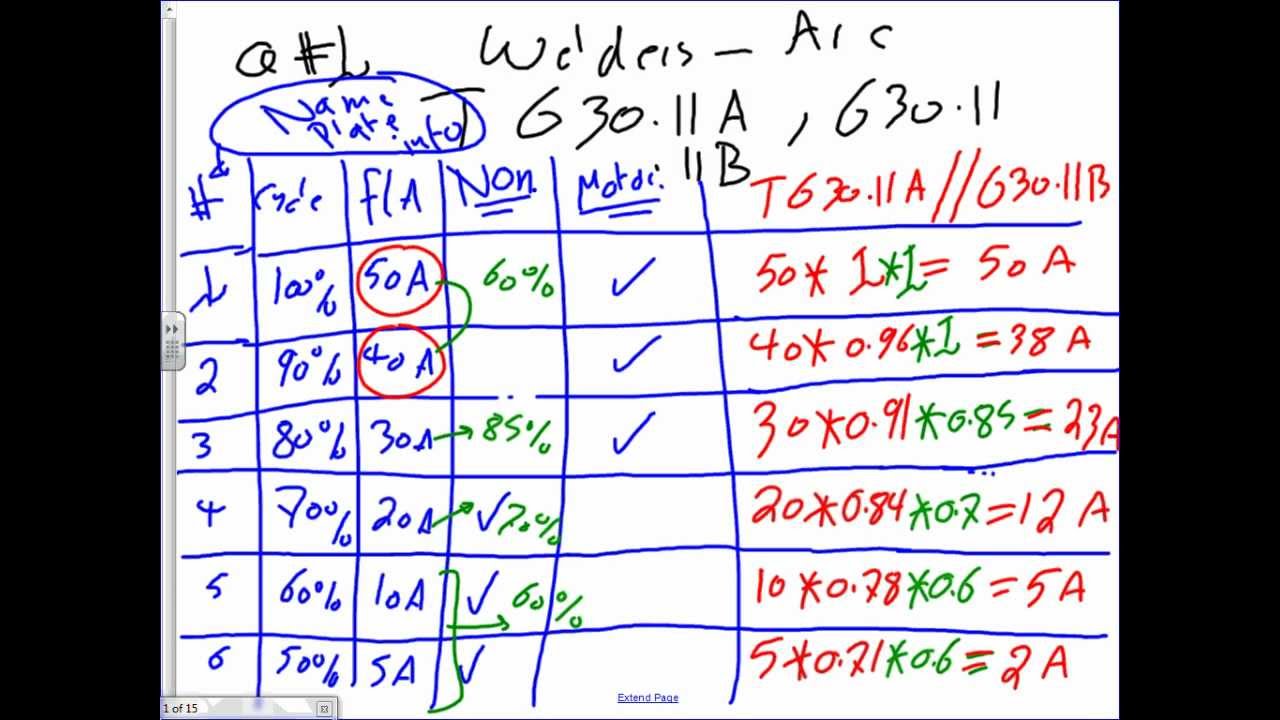 Q #1 Welders – Arc
Name Plate info T 630.11A , 630.11
11B
# Cycle FLA Non. Motor. T630.11A // 630.11B
1 100% 50A 60% ✓ 50* 1*1= 50 A
2 90% 40A ✓ 40* 0.96*1 = 38 A
3 80% 30A → 85% ✓ 30*0.91*0.85 = 23A
4 70% 20A → ✓ 70% 20*0.84*0.7 = 12 A
5 60% 10A ✓ 60% 10*0.78*0.6 = 5A
6 50% 5A ✓ 5*0.71*0.6 = 2 A
Extend Page
1 of 15